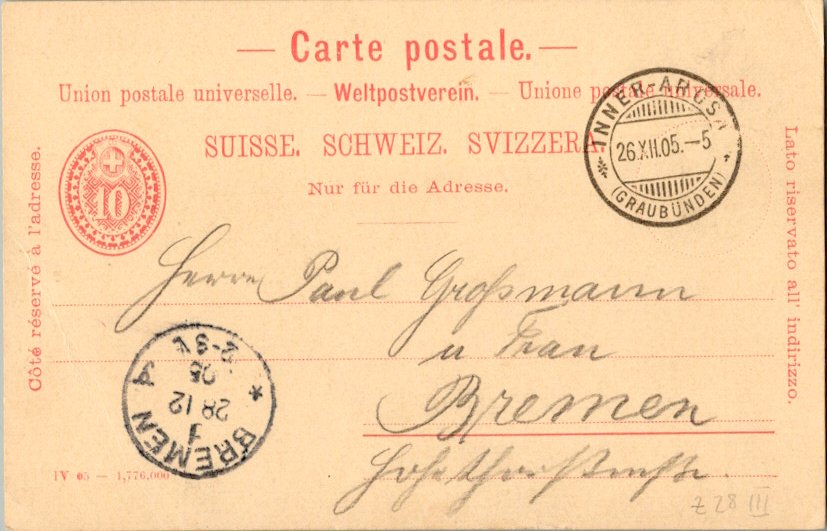 — Carte postale. —
Union postale universelle. — Weltpostverein. — Unione postale universale.
SUISSE. SCHWEIZ. SVIZZERA
Nur für die Adresse.
10
Côté réservé à l'adresse.
Lato riservato all' indirizzo.
INNER-AROSA
26.XII.05.–5
(GRAUBÜNDEN)
Herrn Paul Großmann
u Frau
Bremen
BREMEN
1
28 12
05
2-3 V.
A
IV 05 — 1,776,000
Z 28 III